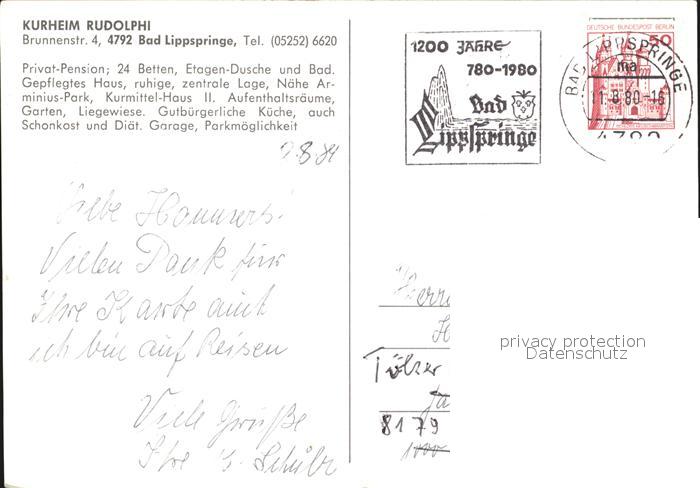 KURHEIM RUDOLPHI
Brunnenstr. 4, 4792 Bad Lippspringe, Tel. (05252) 6620
Privat-Pension; 24 Betten, Etagen-Dusche und Bad.
Gepflegtes Haus, ruhige, zentrale Lage, Nähe Ar-
minius-Park, Kurmittel-Haus II. Aufenthaltsräume,
Garten, Liegewiese. Gutbürgerliche Küche, auch
Schonkost und Diät. Garage, Parkmöglichkeit
1200 JAHRE
780-1980
Bad
Lippspringe
DEUTSCHE BUNDESPOST BERLIN
50
BAD LIPPSPRINGE
ma
11.8.80-16
4792
Liebe
Vielen Dank für
Ihre Karte auch
ich bin auf Reisen
Viele Grüße
Ihre
Herrn
H
privacy protection
Datenschutz
Tölzer
8179
1000